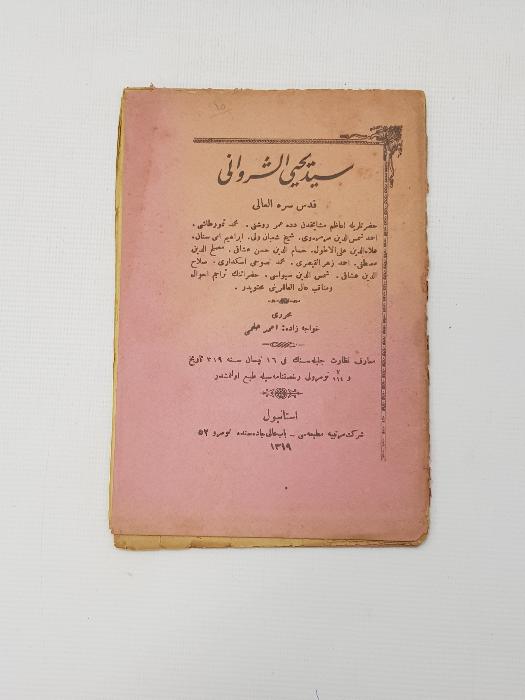 ١٥
سيد يحيى الشروانى
قدس سره العالى
حضرتلريله اعاظم مشايخدن دده عمر روشنى . محمد تيمورطاشى .
احمد شمس الدين مرمروى . شيخ شعبان ولى . ابراهيم امى سنان .
علاءالدين على الاطول . حسام الدين حسن عشاقى . مصلح الدين
مصطفى . احمد زهر القيصرى . محمد نصوحى اسكدارى . صلاح
الدين عشاقى . شمس الدين سيواسى . حضراتنك تراجم احوال
ومناقب عال العاللرينى محتويدر .
محررى
خواجه زاده: احمد حلمى
معارف نظارت جليله سنك فى ١٦ نيسان سنه ٣١٩ تاريخ
و ١١٤ نومرولى رخصتنامه سيله طبع اولنمشدر
استانبول
شركت مرتبيه مطبعه سى – باب عالى جاده سنده نومرو ٥٢
١٣١٩